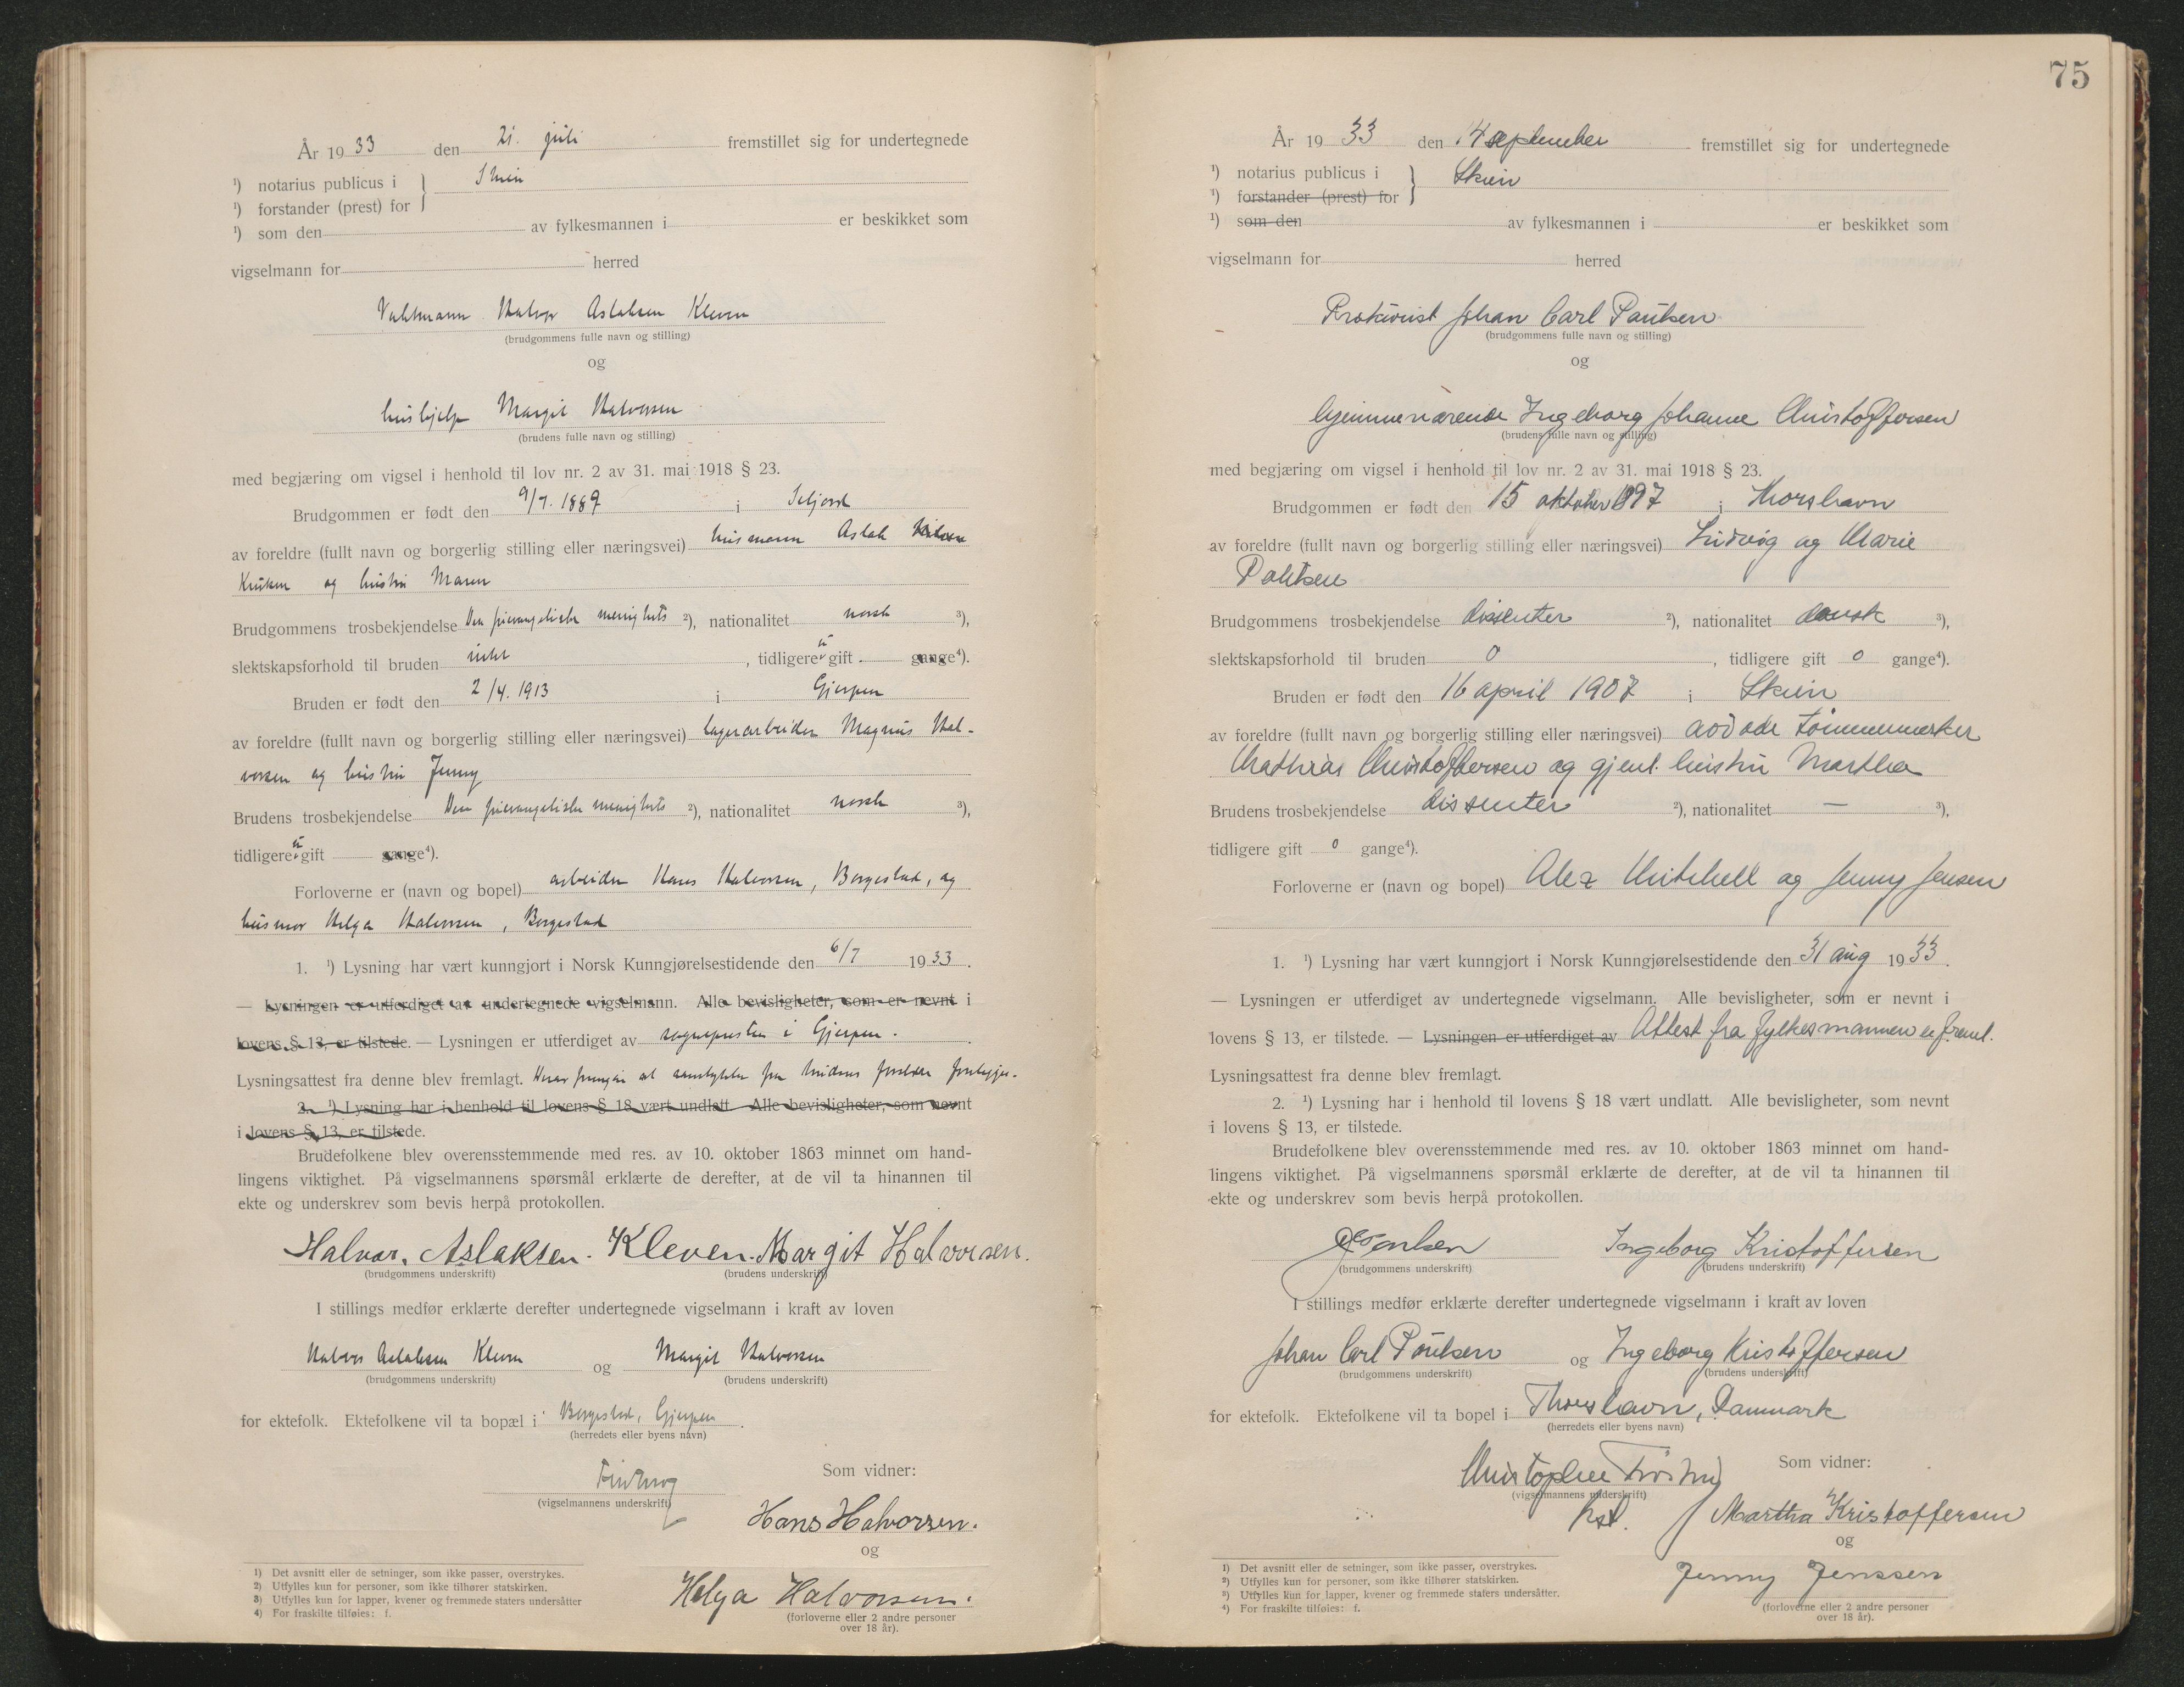 År 19 33 den 21. juli fremstillet sig for undertegnede
¹) notarius publicus i } Skien
¹) forstander (prest) for
¹) som den av fylkesmannen i er beskikket som
vigselmann for herred
Vaktmann Halvor Aslaksen Kleven
(brudgommens fulle navn og stilling)
og
hushjelp Margit Halvorsen
(brudens fulle navn og stilling)
med begjæring om vigsel i henhold til lov nr. 2 av 31. mai 1918 § 23.
Brudgommen er født den 9/7. 1889 i Seljord
av foreldre (fullt navn og borgerlig stilling eller næringsvei) husmann Aslak
og hustru Maren
Brudgommens trosbekjendelse Den frievangeliske menighets ²), nationalitet norsk ³),
slektskapsforhold til bruden intet , tidligere ei gift gange⁴).
Bruden er født den 2/4. 1913 i Gjerpen
av foreldre (fullt navn og borgerlig stilling eller næringsvei) lagerarbeider Magnus Hal-
vorsen og hustru Jenny
Brudens trosbekjendelse Den frievangeliske menighets ²), nationalitet norsk ³),
tidligere ei gift gange⁴).
Forloverne er (navn og bopel) arbeider Hans Halvorsen, Borgestad, og
husmor Helga Halvorsen, Borgestad
1. ¹) Lysning har vært kunngjort i Norsk Kunngjørelsestidende den 6/7 19 33.
— Lysningen er utferdiget av undertegnede vigselmann. Alle bevisligheter, som er nevnt i
lovens § 13, er tilstede. — Lysningen er utferdiget av sognepresten i Gjerpen.
Lysningsattest fra denne blev fremlagt. Herav fremgår at samtykke fra brudens foreldre foreligger.
2. ¹) Lysning har i henhold til lovens § 18 vært undlatt. Alle bevisligheter, som nevnt
i lovens § 13, er tilstede.
Brudefolkene blev overensstemmende med res. av 10. oktober 1863 minnet om hand-
lingens viktighet. På vigselmannens spørsmål erklærte de derefter, at de vil ta hinannen til
ekte og underskrev som bevis herpå protokollen.
Halvor. Aslaksen. Kleven. Margit Halvorsen.
(brudgommens underskrift) (brudens underskrift)
I stillings medfør erklærte derefter undertegnede vigselmann i kraft av loven
Halvor Aslaksen Kleven og Margit Halvorsen
(brudgommens underskrift) (brudens underskrift)
for ektefolk. Ektefolkene vil ta bopæl i Borgestad, Gjerpen.
(herredets eller byens navn)
Som vidner:
(vigselmannens underskrift)
Hans Halvorsen.
og
Helga Halvorsen.
(forloverne eller 2 andre personer
over 18 år).
1) Det avsnitt eller de setninger, som ikke passer, overstrykes.
2) Utfylles kun for personer, som ikke tilhører statskirken.
3) Utfylles kun for lapper, kvener og fremmede staters undersåtter
4) For fraskilte tilføies: f.
75
År 19 33 den 14 september fremstillet sig for undertegnede
¹) notarius publicus i } Skien
¹) forstander (prest) for
¹) som den av fylkesmannen i er beskikket som
vigselmann for herred
Prokurist Johan Carl Poulsen
(brudgommens fulle navn og stilling)
og
hjemmeværende Ingeborg Johanne Christoffersen
(brudens fulle navn og stilling)
med begjæring om vigsel i henhold til lov nr. 2 av 31. mai 1918 § 23.
Brudgommen er født den 15 oktober 1897 i Thorshavn
av foreldre (fullt navn og borgerlig stilling eller næringsvei) Ludvig og Marie
Poulsen
Brudgommens trosbekjendelse dissenter ²), nationalitet dansk ³),
slektskapsforhold til bruden 0 , tidligere gift 0 gange⁴).
Bruden er født den 16 april 1907 i Skien
av foreldre (fullt navn og borgerlig stilling eller næringsvei) avdøde tømmermerker
Mathias Christoffersen og gjenl. hustru Martha
Brudens trosbekjendelse dissenter ²), nationalitet — ³),
tidligere gift 0 gange⁴).
Forloverne er (navn og bopel) Alex Mitchell og Jenny Jensen
1. ¹) Lysning har vært kunngjort i Norsk Kunngjørelsestidende den 31 aug 19 33.
— Lysningen er utferdiget av undertegnede vigselmann. Alle bevisligheter, som er nevnt i
lovens § 13, er tilstede. — Lysningen er utferdiget av Attest fra fylkesmannen er freml.
Lysningsattest fra denne blev fremlagt.
2. ¹) Lysning har i henhold til lovens § 18 vært undlatt. Alle bevisligheter, som nevnt
i lovens § 13, er tilstede.
Brudefolkene blev overensstemmende med res. av 10. oktober 1863 minnet om hand-
lingens viktighet. På vigselmannens spørsmål erklærte de derefter, at de vil ta hinannen til
ekte og underskrev som bevis herpå protokollen.
Poulsen Ingeborg Kristoffersen
(brudgommens underskrift) (brudens underskrift)
I stillings medfør erklærte derefter undertegnede vigselmann i kraft av loven
Johan Carl Poulsen og Ingeborg Kristoffersen
(brudgommens underskrift) (brudens underskrift)
for ektefolk. Ektefolkene vil ta bopel i Thorshavn, Danmark
(herredets eller byens navn)
Christopher
Som vidner:
(vigselmannens underskrift)
kst. Martha Kristoffersen
og
Jenny Jenssen
(forloverne eller 2 andre personer
over 18 år).
¹) Det avsnitt eller de setninger, som ikke passer, overstrykes.
²) Utfylles kun for personer, som ikke tilhører statskirken.
³) Utfylles kun for lapper, kvener og fremmede staters undersåtter.
⁴) For fraskilte tilføies: f.